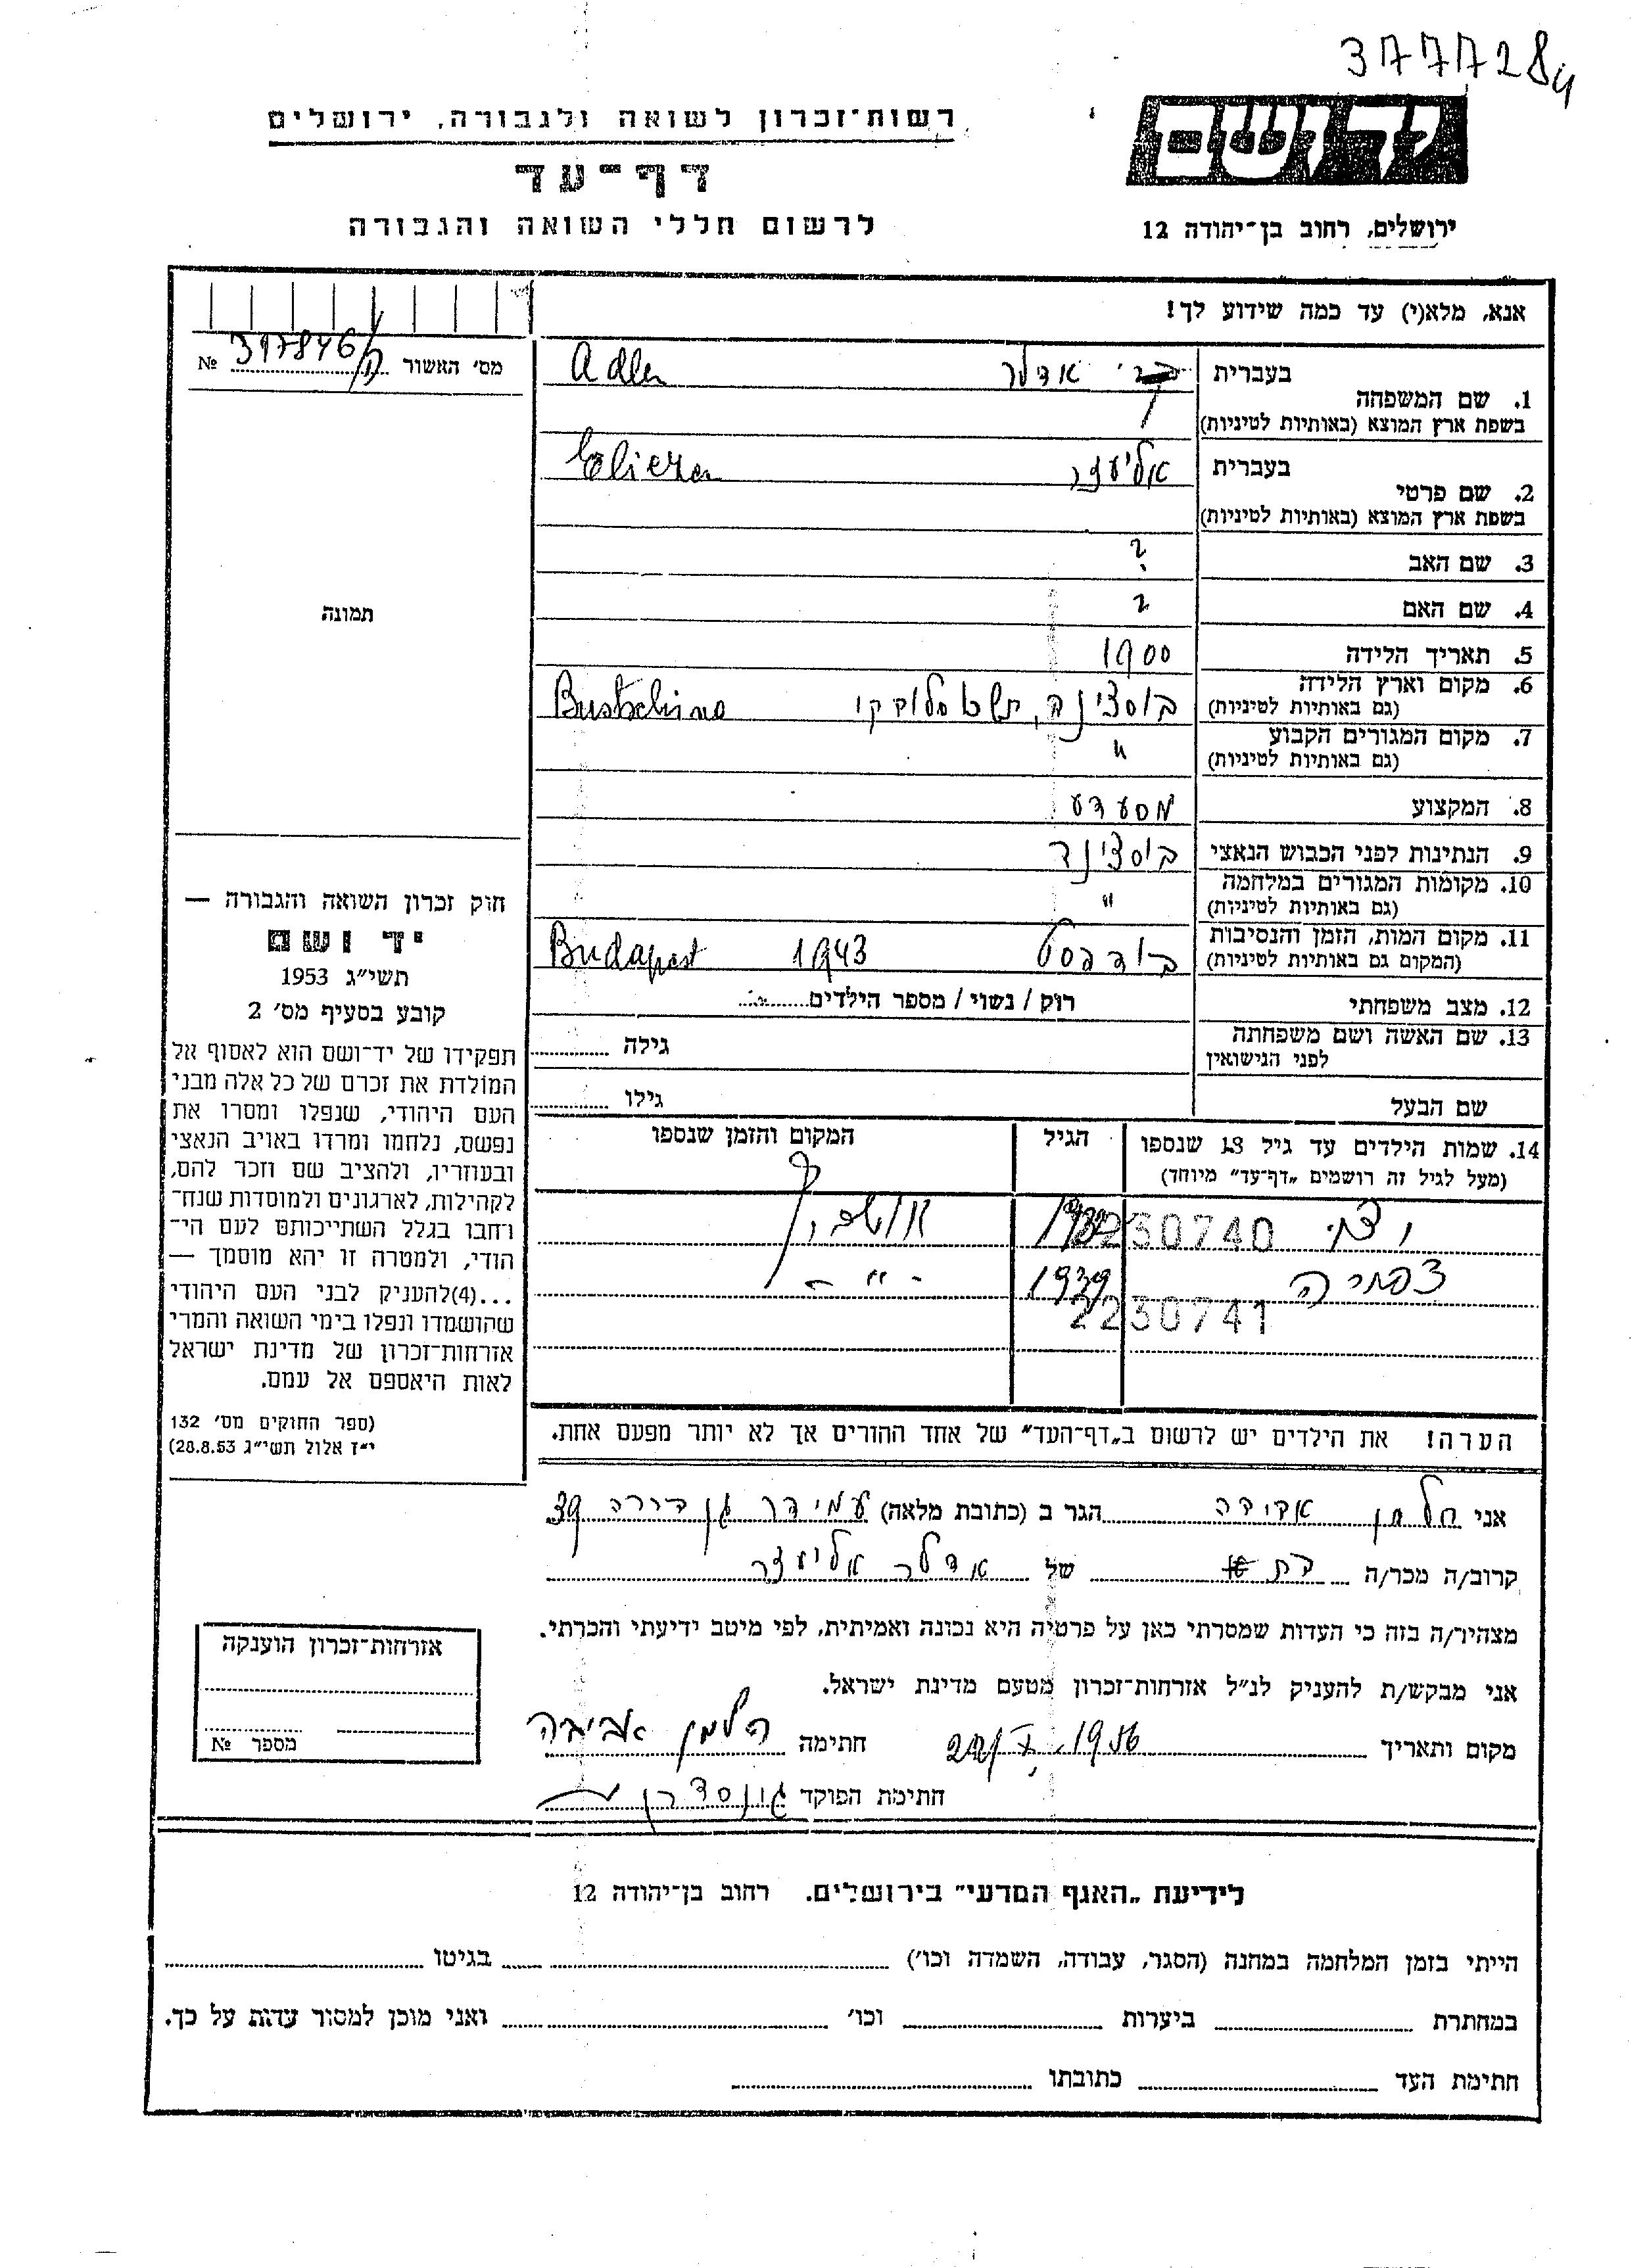 3777284
ידושם
ירושלים, רחוב בן־יהודה 12
רשות־זכרון לשואה ולגבורה, ירושלים
דף־עד
לרשום חללי השואה והגבורה
אנא, מלא(י) עד כמה שידוע לך!
מס׳ האשור № 397846/ק
תמונה
1. שם המשפחה
בעברית אדלר Adler
בשפת ארץ המוצא (באותיות לטיניות)
2. שם פרטי
בעברית אליעזר Eliezer
בשפת ארץ המוצא (באותיות לטיניות)
3. שם האב ?
4. שם האם ?
5. תאריך הלידה 1900
6. מקום וארץ הלידה
(גם באותיות לטיניות)
7. מקום המגורים הקבוע "
(גם באותיות לטיניות)
8. המקצוע
9. הנתינות לפני הכבוש הנאצי
10. מקומות המגורים במלחמה "
(גם באותיות לטיניות)
11. מקום המות, הזמן והנסיבות בודפסט 1943 Budapest
(המקום גם באותיות לטיניות)
12. מצב משפחתי רוק / נשוי / מספר הילדים
13. שם האשה ושם משפחתה גילה
לפני הנישואין
שם הבעל גילו
14. שמות הילדים עד גיל 18 שנספו הגיל המקום והזמן שנספו
(מעל לגיל זה רושמים „דף־עד״ מיוחד)
230740
1939 - " -
2230741
הערה! את הילדים יש לרשום ב„דף־העד״ של אחד ההורים אך לא יותר מפעם אחת.
חוק זכרון השואה והגבורה —
יד ושם
תשי״ג 1953
קובע בסעיף מס׳ 2
תפקידו של יד־ושם הוא לאסוף אל
המולדת את זכרם של כל אלה מבני
העם היהודי, שנפלו ומסרו את
נפשם, נלחמו ומרדו באויב הנאצי
ובעוזריו, ולהציב שם וזכר להם,
לקהילות, לארגונים ולמוסדות שנח־
רחבו בגלל השתייכותם לעם הי־
הודי, ולמטרה זו יהא מוסמך —
...(4)להעניק לבני העם היהודי
שהושמדו ונפלו בימי השואה והמרי
אזרחות־זכרון של מדינת ישראל
לאות היאספם אל עמם.
(ספר החוקים מס׳ 132
י״ז אלול תשי״ג 28.8.53)
אני הלמן הגר ב (כתובת מלאה) עמידר גן דירה 39
קרוב/ה מכר/ה בת של אדלר אליעזר
מצהיר/ה בזה כי העדות שמסרתי כאן על פרטיה היא נכונה ואמיתית, לפי מיטב ידיעתי והכרתי.
אני מבקש/ת להעניק לנ״ל אזרחות־זכרון מטעם מדינת ישראל.
מקום ותאריך 1956 חתימה הלמן אביבה
חתימת הפוקד
אזרחות־זכרון הוענקה
מספר №
לידיעת „האגף המדעי״ בירושלים. רחוב בן־יהודה 12
הייתי בזמן המלחמה במחנה (הסגר, עבודה, השמדה וכו׳) בגיטו
במחתרת ביערות וכו׳ ואני מוכן למסור עדות על כך.
חתימת העד כתובתו